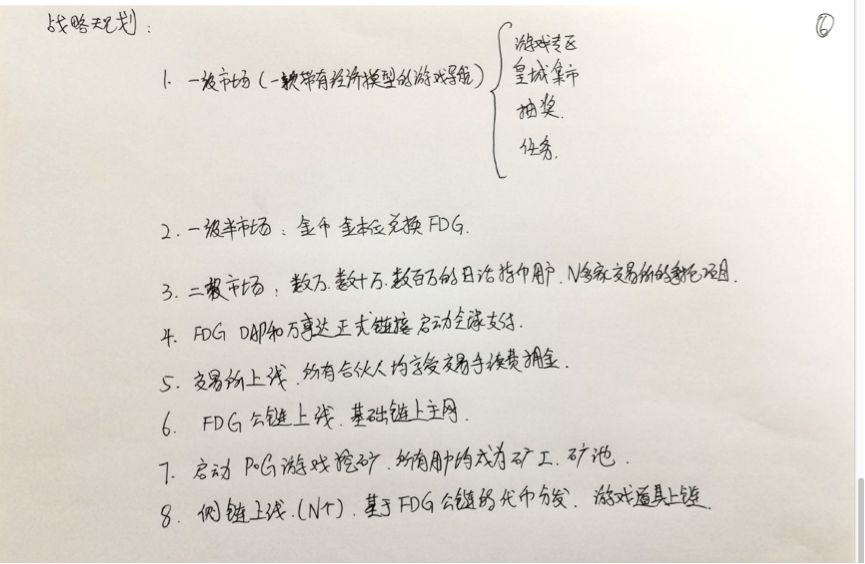 战略规划：
⑥
1. 一级市场（一款带有经济模型的游戏导航）
游戏专区
皇城集市
抽奖.
任务.
2. 一级半市场：金币 金本位兑换 FDG.
3. 二级市场：数万.数十万.数百万的日活持币用户.N多家交易所的项目.
4. FDG DAPP和万事达正式链接 启动全球支付.
5. 交易所上线.所有合伙人均享受交易手续费佣金.
6. FDG 公链上线.基础链上主网.
7. 启动 PoG 游戏挖矿.所有用户均成为矿工.矿池.
8. 侧链上线.(N个).基于 FDG 公链的代币分发.游戏道具上链.